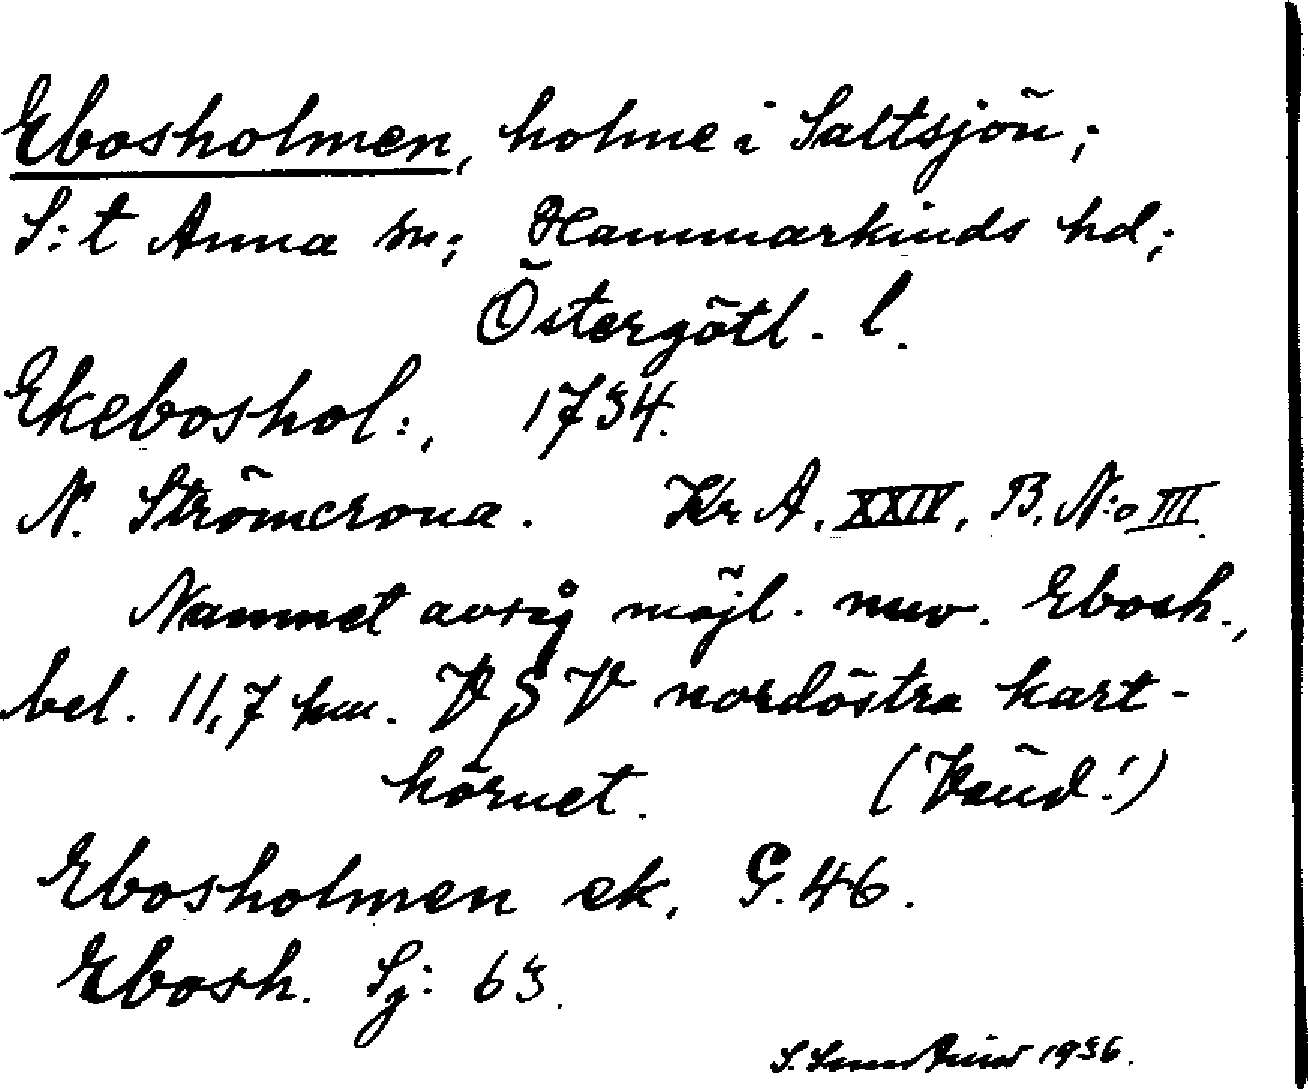 Ebosholmen, holme i Saltsjön;
S:t Anna sn; Hammarkinds hd;
Östergötl. l.
Ekeboshol:, 1734.
N. Strömcrona. Kr. A. XXIV, B. N:o III.
Namnet avsåg möjl. nuv. Ebosh.,
bel. 11,7 km. V S V nordöstra kart-
hörnet. (Vänd!)
Ebosholmen ek. G. 46.
Ebosh. Sj: 63.
1936.